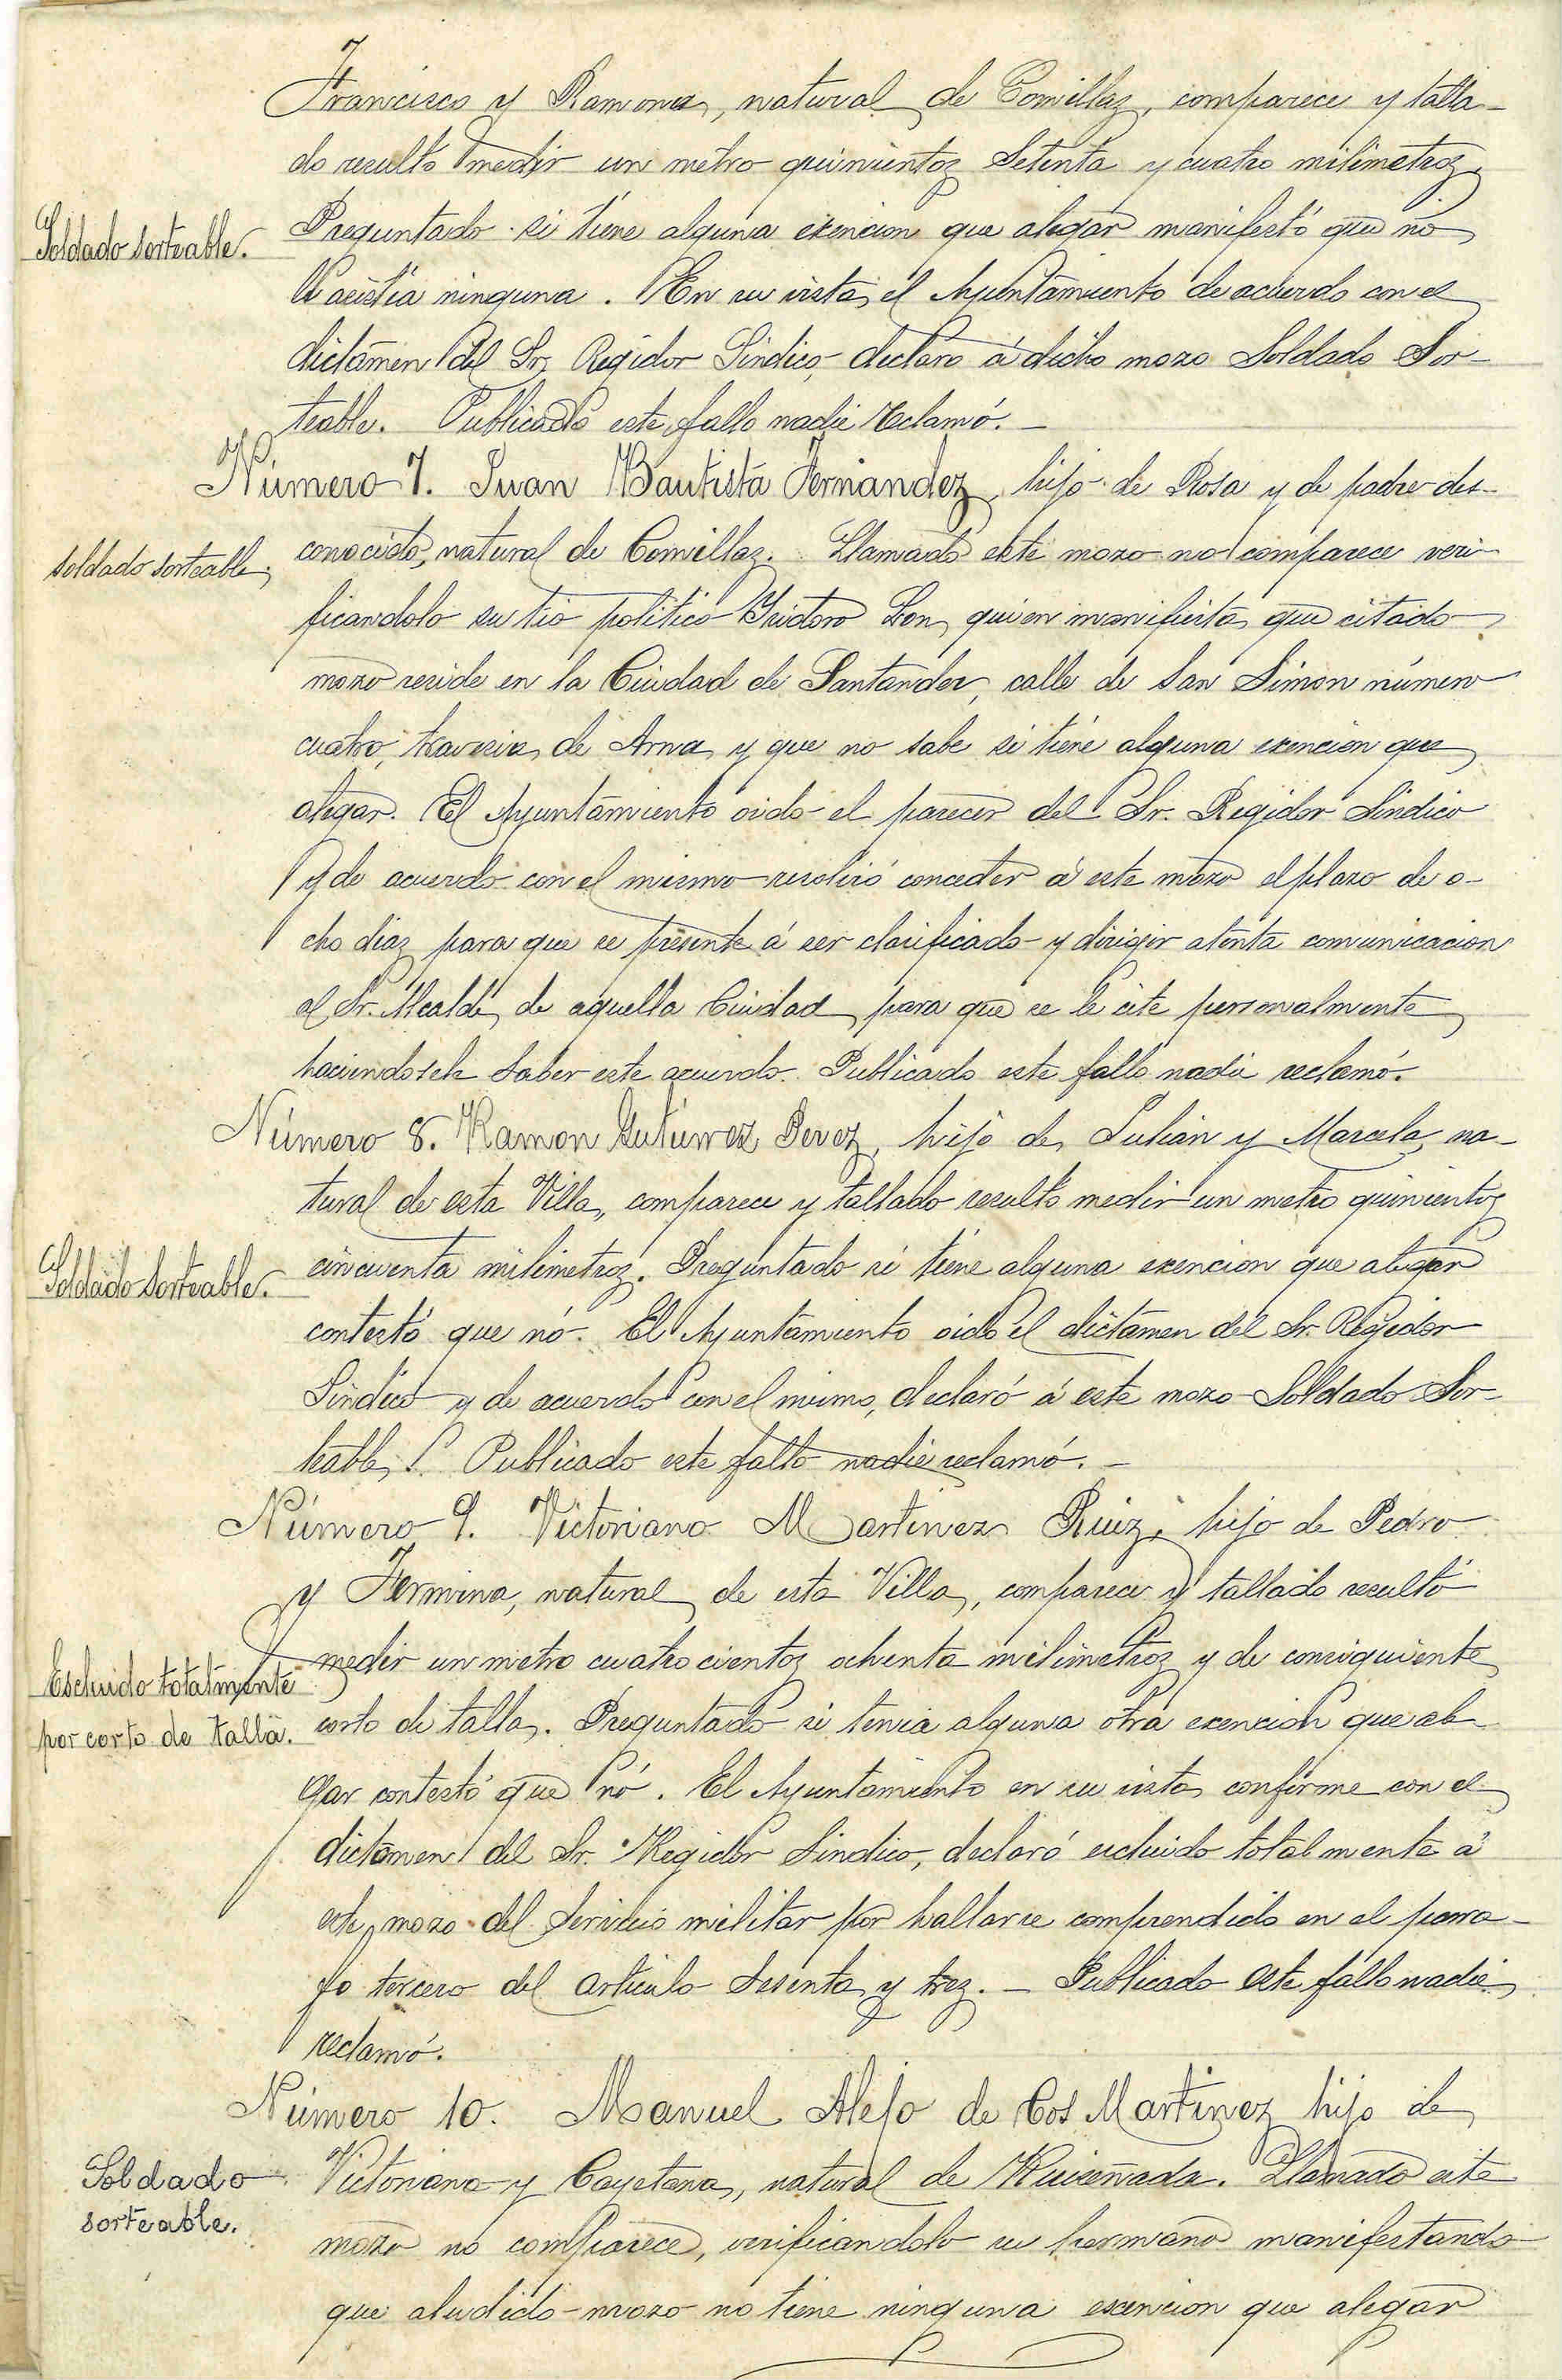 Francisco y Ramona, natural de Comillas, comparece y talla-
do resultó medir un metro quinientos setenta y cuatro milimetros.
Soldado sorteable.
Preguntado si tiene alguna exencion que alegar manifestó que no
le asistía ninguna. En su vista, el Ayuntamiento de acuerdo con el
dictámen del Sr. Regidor Sindico, declaró á dicho mozo Soldado Sor-
teable. Publicado este fallo nadie reclamó. -
Número 7. Juan Bautista Fernandez, hijo de Rosa y de padre des-
soldado sorteable.
conocido, natural de Comillas. Llamado este mozo no comparece veri-
ficandolo su tio politico Ysidoro Leon, quien manifiesta que citado
mozo reside en la Ciudad de Santander, calle de San Simon número
cuatro, travesia de Arna y que no sabe si tiene alguna exencion que
alegar. El Ayuntamiento oido el parecer del Sr. Regidor Sindico
y de acuerdo con el mismo resolvió conceder á este mozo el plazo de o-
cho dias para que se presente á ser clasificado y dirigir atenta comunicacion
al Sr. Alcalde de aquella Ciudad para que se le cite personalmente
haciendosele saber este acuerdo. Publicado este fallo nadie reclamó.
Número 8. Ramon Gutierrez Perez, hijo de Julian y Marcela, na-
tural de esta Villa, comparece y tallado resultó medir un metro quinientos
Soldado Sorteable.
cincuenta milimetros. Preguntado si tiene alguna exencion que alegar
contestó que nó. El Ayuntamiento oido el dictamen del Sr. Regidor
Sindico y de acuerdo con el mismo, declaró á este mozo Soldado Sor-
teable. Publicado este fallo nadie reclamó. -
Número 9. Victoriano Martinez Ruiz, hijo de Pedro
y Fermina, natural de esta Villa, comparece y tallado resultó
medir un metro cuatrocientos ochenta milimetros y de consiguiente
Escluido totalmente
por corto de talla.
corto de talla. Preguntado si tenia alguna otra exencion que ale-
gar contestó que nó. El Ayuntamiento en su vista conforme con el
dictámen del Sr. Regidor Sindico, declaró escluido totalmente á
este mozo del Servicio militar por hallarse comprendido en el parra-
fo tercero del articulo sesenta y tres. - Publicado este fallo nadie
reclamó.
Número 10. Manuel Alejo de Cos Martinez hijo de
Soldado
sorteable.
Victoriano y Cayetana, natural de Ruiseñada. Llamado este
mozo no comparece, verificandolo su hermano manifestando
que aludido mozo no tiene ninguna escencion que alegar